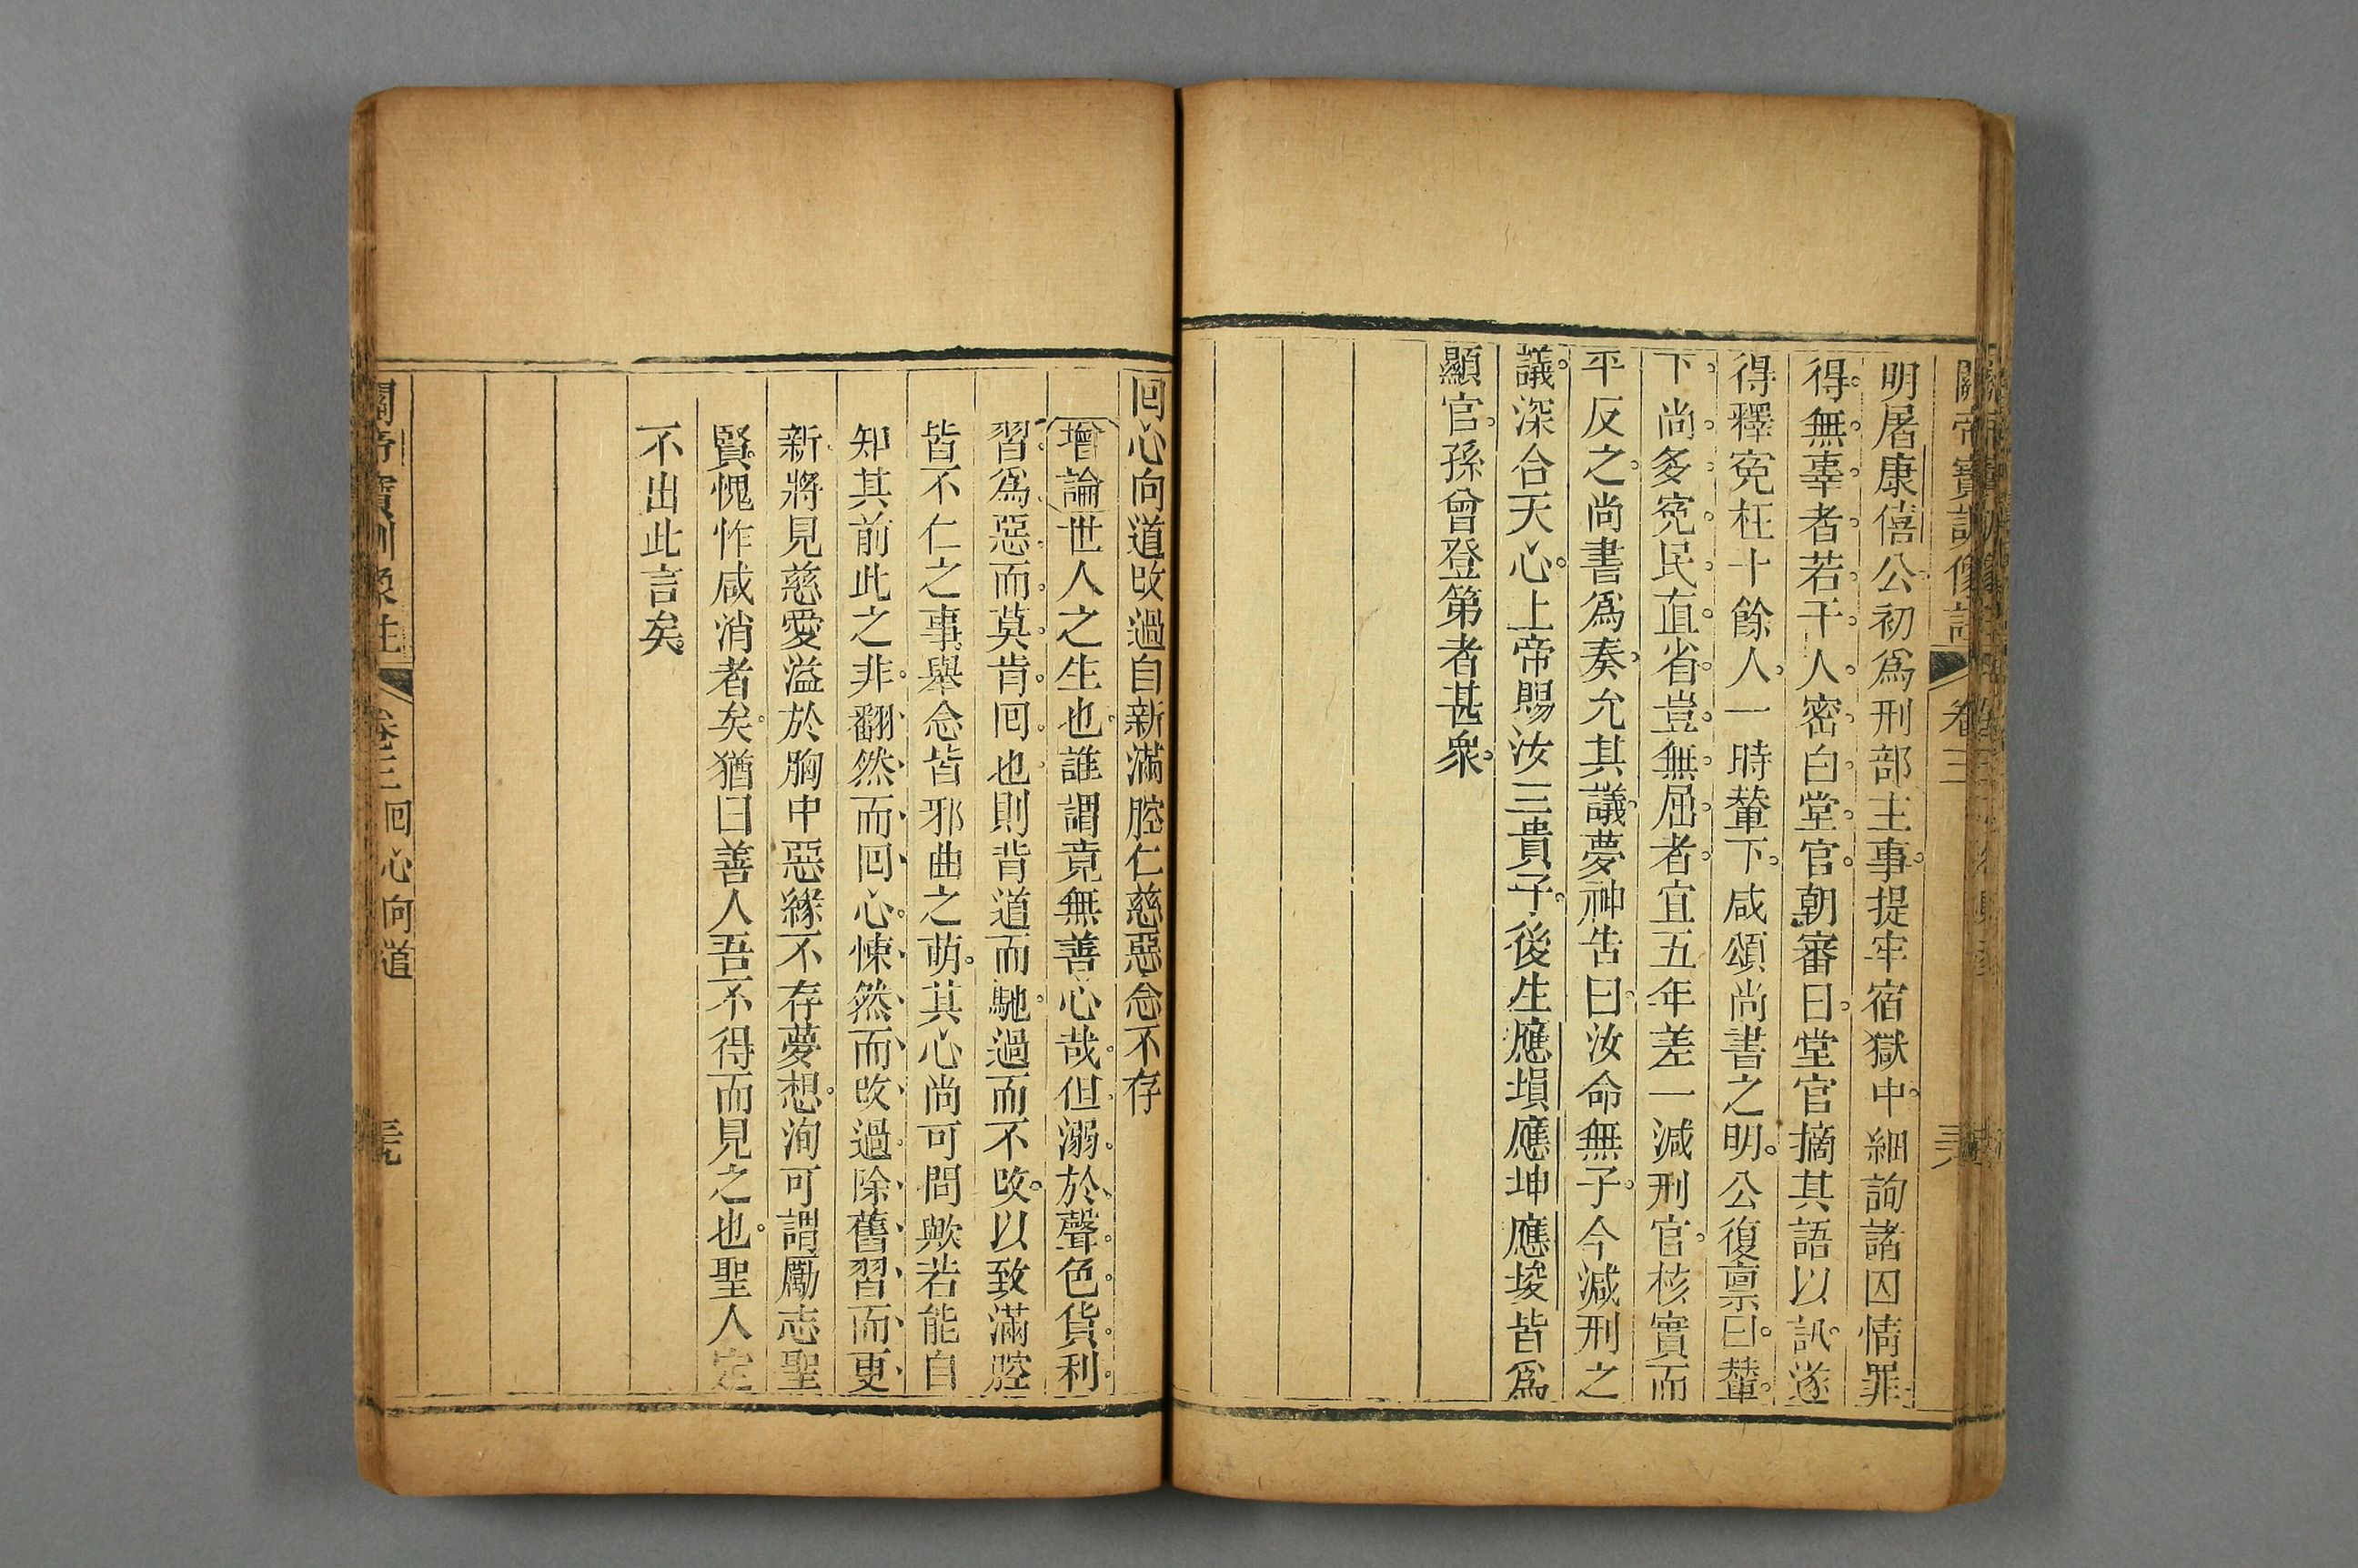 關帝寶訓像註 卷三
明屠康僖公初爲刑部主事。提牢宿獄中。細詢諸囚情罪
得。無辜者若干人。密白堂官。朝審日。堂官摘其語以訊。遂
得釋冤枉十餘人。一時輦下。咸頌尚書之明。公復禀曰。輦
下。尚多冤民。直省。豈無屈者。宜五年差一減刑官。核實而
平反之。尚書爲奏。允其議。夢神告曰。汝命無子。今減刑之
議。深合天心。上帝賜汝三貴子。後生應塤應坤應埈皆爲
顯官。孫曾登第者甚衆。
回心向道改過自新滿腔仁慈惡念不存
增論世人之生也。誰謂竟無善心哉。但溺於聲色貨利。
習爲惡而莫肯回也。則背道而馳。過而不改。以致滿腔
皆不仁之事。舉念皆邪曲之萌。其心尚可問歟若能自
知其前此之非。翻然而回心。悚然而改過。除舊習而更
新。將見慈愛溢於胸中惡緣不存夢想。洵可謂勵志聖
賢。愧怍咸消者矣。猶曰善人吾不得而見之也。聖人定
不出此言矣。
關帝寶訓像註 卷三 回心向道